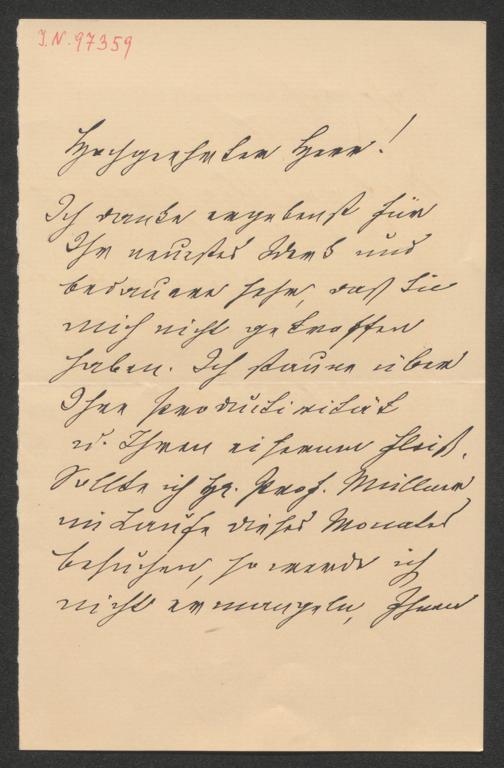 J.N. 97359
Hochgeehrter Herr!
Ich danke ergebenst für
Ihr neuestes Werk und
bedauere sehr, daß Sie
mich nicht getroffen
haben. Ich staune über
Ihre Productivität
u. Ihren eisernen Fleiß.
Sollte ich H. Prof. Müllner
im Laufe dieses Monates
besuchen, so werde ich
nicht ermangeln, Ihnen